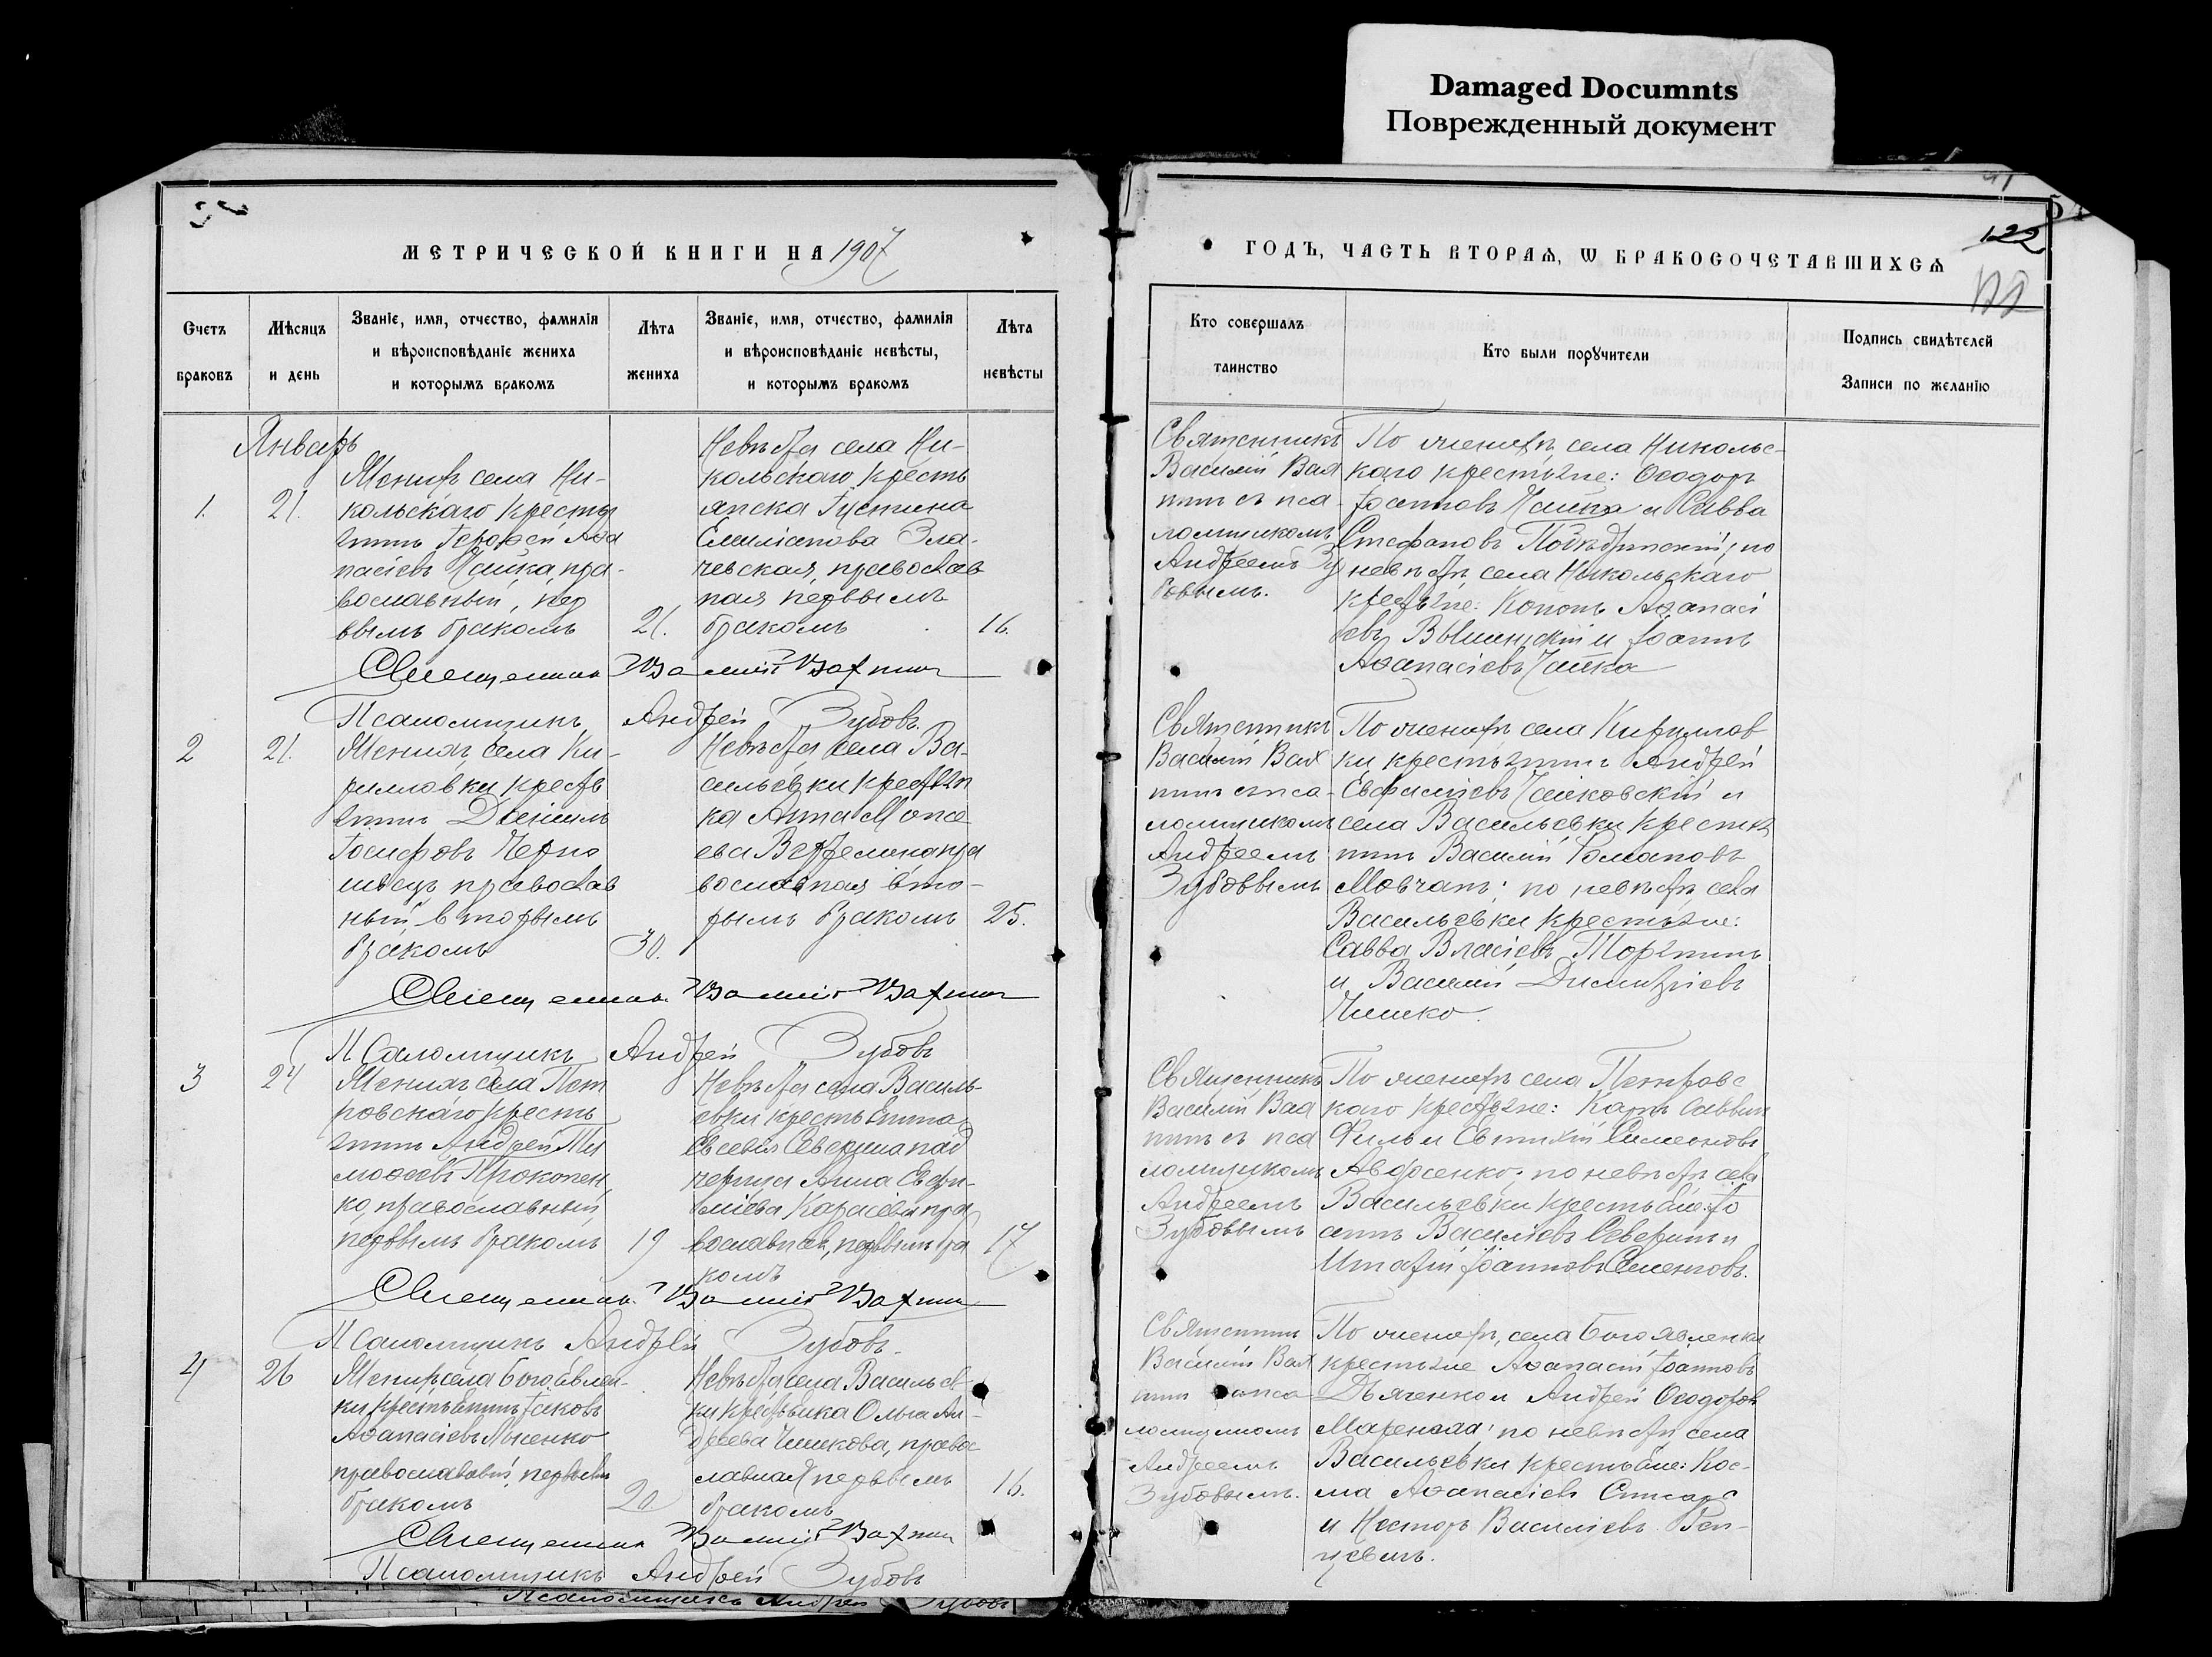 Damaged Documnts
Поврежденный документ
МЕТРИЧЕСКОЙ КНИГИ НА 1907
ГОДЪ, ЧАСТЬ ВТОРАѦ, Ѡ БРАКОСОЧЕТАВШИХСѦ
122
Счетъ браковъ
Мѣсяцъ и день
Званіе, имя, отчество, фамилія
и вѣроисповѣданіе жениха
и которымъ бракомъ
Лѣта жениха
Званіе, имя, отчество, фамилія
и вѣроисповѣданіе невѣсты,
и которымъ бракомъ
Лѣта невѣсты
Кто совершалъ таинство
Кто были порꙋчители
Подпись свидѣтелей
Записи по желанію
Январь
1.
21.
Женихъ села Ни-
кольскаго крестья
нинъ Герофей Аѳа
насіевъ Чайка, пра-
вославный, пер
вымъ бракомъ
21.
Невѣста села Ни-
кольскаго кресть
янска Іустина
Емиліанова
чевская, православ
ная первымъ
бракомъ
16.
Священникъ
Василій Вах
нинъ съ пса
ломщикомъ
Андреемъ Зу
бовымъ.
По жениху села Никольс-
каго крестьяне: Ѳеодоръ
Іоанновъ Чайка и Савва
Стефановъ по
невѣстѣ, села Никольскаго
крестьяне: Кононъ Аѳанасі
евъ и Іоаннъ
Аѳанасіевъ Чайка
Священникъ Василій
Псаломщикъ Андрей Зубовъ.
2
21.
Женихъ села Ки-
рилловки кресть
янинъ Даніилъ
Іосифовъ Черно
православ
ный, вторымъ
бракомъ
30.
Невѣста села Ва-
сильевки крестьян
ка Анна Моисе
ева пра
вославная вто-
рымъ бракомъ
25.
Священникъ
Василій Вах
нинъ съ пса-
ломщикомъ
Андреемъ
Зубовымъ
По жениху села Кириллов
ки крестьянинъ Андрей
и
села Васильевки крестья
нинъ Василій Романовъ
Мовчанъ; по невѣстѣ села
Васильевки крестьяне:
Савва Власіевъ
и Василій Димитріевъ
Чишко.
Священникъ Василій
Псаломщикъ Андрей Зубовъ
3
24
Женихъ села Пет
ровскаго кресть
янинъ Андрей Ти
моѳеевъ Прокопен
ко, православный,
первымъ бракомъ
19
Невѣста села Василь-
евки крестьянина
Евсевія Северина пад
черица Анна Евфи-
міева пра
вославная, первымъ бра
комъ
17
Священникъ
Василій Вах
нинъ съ пса
ломщикомъ
Андреемъ
Зубовымъ
По жениху села Петровс
каго крестьяне: Карпъ Саввинъ
и Евтихій Симеоновъ
по невѣстѣ села
Васильевки крестьяне: Іо
аннъ Василіевъ Северинъ и
Іоанновъ Семеновъ.
Священникъ Василій
Псаломщикъ Андрей Зубовъ.
4
26
Женихъ села Богоявлен-
ки крестьянинъ Іаковъ
Аѳанасіевъ
православный, первымъ
бракомъ
20
Невѣста села Васильев-
ки крестьянка Ольга Ан-
дреева Чишкова, правос
лавная первымъ
бракомъ
16.
Священникъ
Василій Вах
нинъ съ пса
ломщикомъ
Андреемъ
Зубовымъ.
По жениху, села Богоявленки
крестьяне Аѳанасій Іоанновъ
Дьяченко и Андрей Ѳеодоровъ
по невѣстѣ, села
Васильевки крестьяне: Кос-
ма Аѳанасіевъ
и Несторъ Василіевъ
Священникъ Василій
Псаломщикъ Андрей Зубовъ
Псаломщикъ Андрей Зубовъ